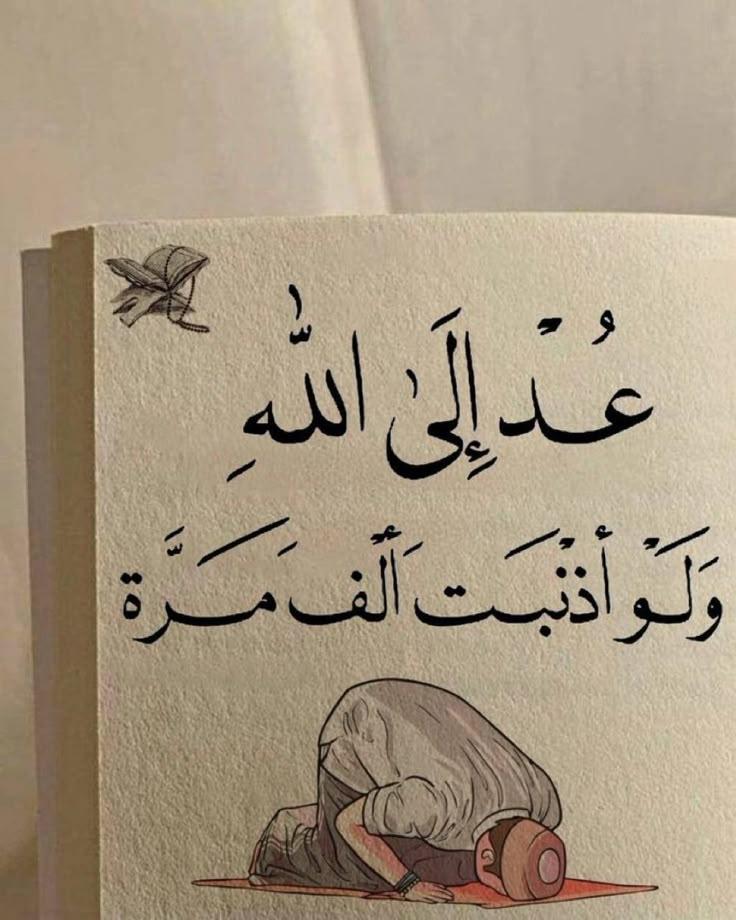 عُدْ إِلَىٰ اللّٰهِ
وَلَوْ أَذْنَبَت أَلْفَ مَرَّة